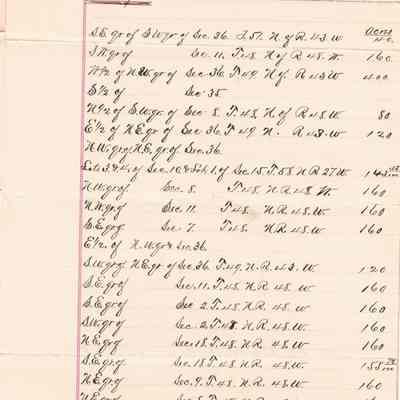 Acres
S.E. qr of S.W. qr of Sec. 36. T. 51. N. of R. 43. W 40.
S.W. qr of Sec. 11. T. 48. N of R. 48. W. 160.
W 1/2 of N.W. qr of Sec. 36 T. 49 N. of R. 43 W 400.
E 1/2 of Sec 35
N 1/2 of S.W. qr of Sec. 8. T. 48. N. of R. 48 W 80
E 1/2 of N.E. qr of Sec. 36. T. 49. N. R. 43. W. 120
N.W. qr of N.E. qr of Sec. 36.
Lots 3. & 4. of Sec. 10. & Lot 1. of Sec. 15 T. 58 N R 27 W
N.W. qr of Sec. 8. T. 48. N. R. 48. W. 160
N.W. qr of Sec. 11. T. 48. N. R. 48. W 160
S.E. qr of Sec. 7. T. 48. N. R. 48. W 160
E 1/2. of N.W. qr & Sec. 36.
S.W. qr of N.E. qr of Sec. 36. T. 49. N. R. 43. W. 120
S.E. qr of Sec. 11. T. 48. N. R. 48. W 160
S.E. qr of Sec. 2. T. 48. N. R. 48. W 160
S.W. qr of Sec. 2. T. 48. N. R. 48. W 160
N.E. qr of Sec. 18. T. 48. N. R. 48. W 160
S.E. qr of Sec. 18. T. 48. N. R. 48. W.
N.E. qr of Sec. 9. T. 48. N. R. 48. W 160